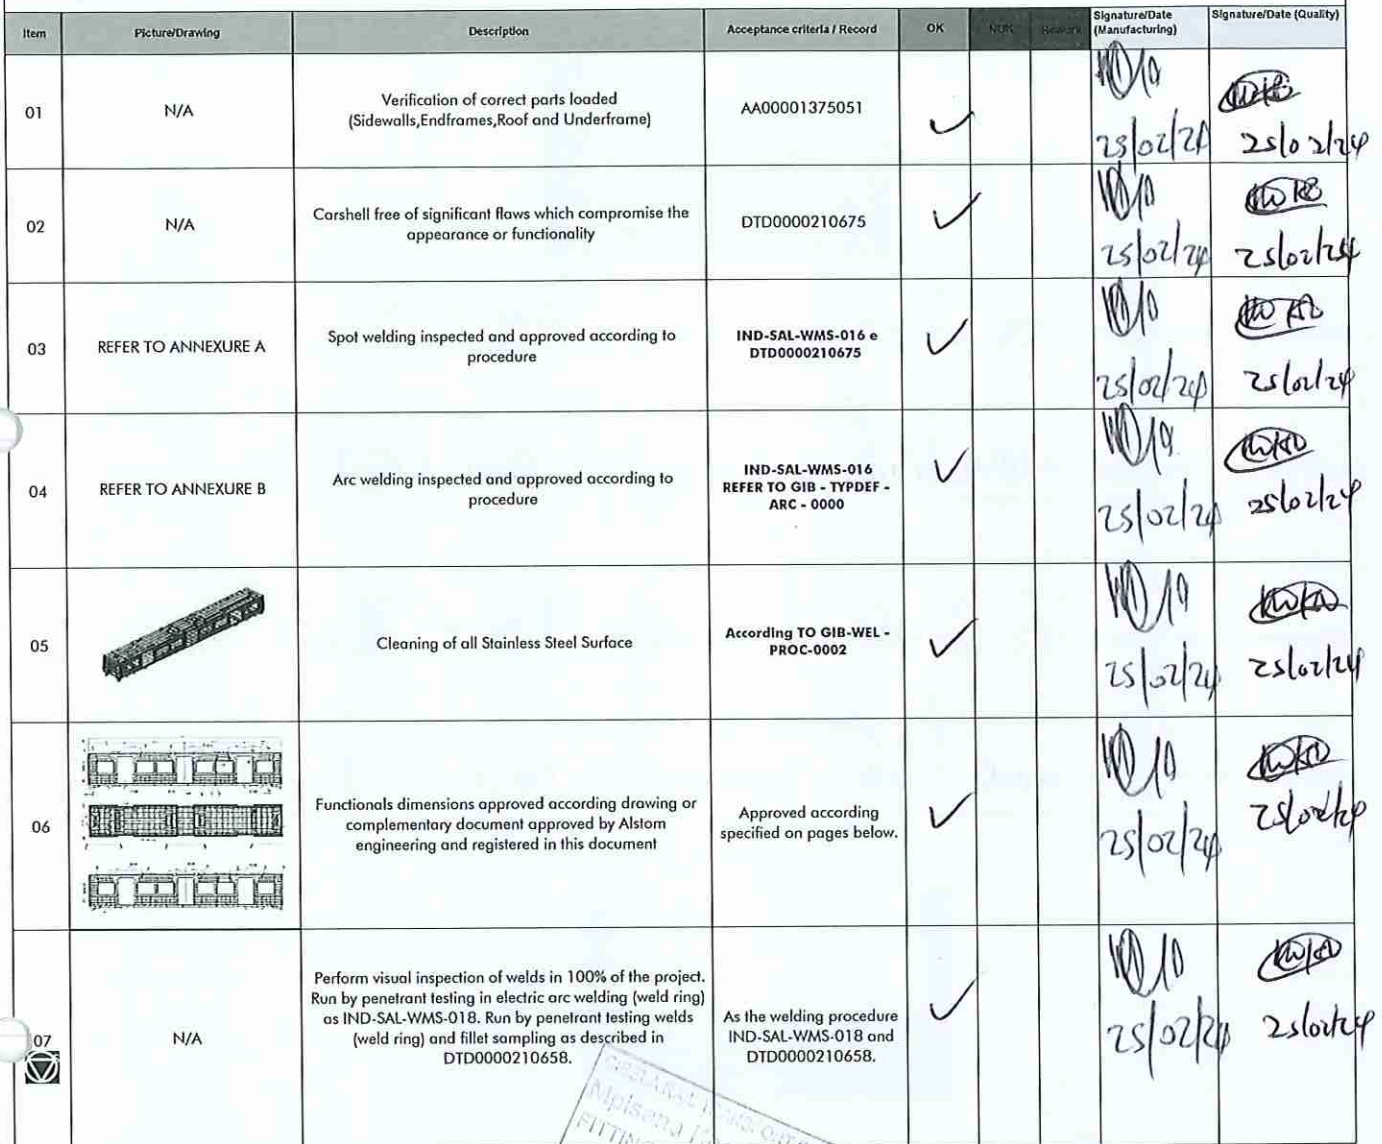 Item Picture/Drawing Description Acceptance criteria / Record OK NOK Rework Signature/Date (Manufacturing) Signature/Date (Quality)
01 N/A Verification of correct parts loaded
(Sidewalls,Endframes,Roof and Underframe) AA00001375051 ✓
25/02/24 25/02/24
02 N/A Carshell free of significant flaws which compromise the
appearance or functionality DTD0000210675 ✓
25/02/24 25/02/24
03 REFER TO ANNEXURE A Spot welding inspected and approved according to
procedure IND-SAL-WMS-016 e
DTD0000210675 ✓
25/02/24 25/02/24
04 REFER TO ANNEXURE B Arc welding inspected and approved according to
procedure IND-SAL-WMS-016
REFER TO GIB - TYPDEF -
ARC - 0000 ✓
25/02/24 25/02/24
05 Cleaning of all Stainless Steel Surface According TO GIB-WEL -
PROC-0002 ✓
25/02/24 25/02/24
06 Functionals dimensions approved according drawing or
complementary document approved by Alstom
engineering and registered in this document Approved according
specified on pages below. ✓
25/02/24 25/02/24
07 N/A Perform visual inspection of welds in 100% of the project.
Run by penetrant testing in electric arc welding (weld ring)
as IND-SAL-WMS-018. Run by penetrant testing welds
(weld ring) and fillet sampling as described in
DTD0000210658. As the welding procedure
IND-SAL-WMS-018 and
DTD0000210658. ✓
25/02/24 25/02/24